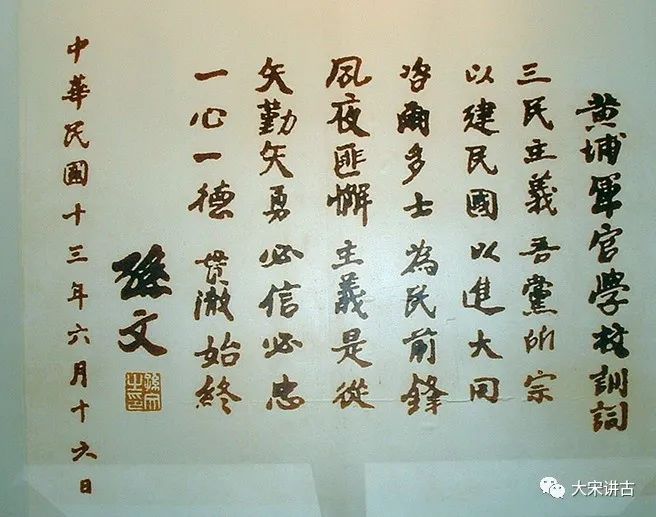 黃埔軍官學校訓詞
三民主義 吾黨所宗
以建民國 以進大同
咨爾多士 為民前鋒
夙夜匪懈 主義是從
矢勤矢勇 必信必忠
一心一德 貫澈始終
孫文
孫文之印
中華民國十三年六月十六日
大宋讲古